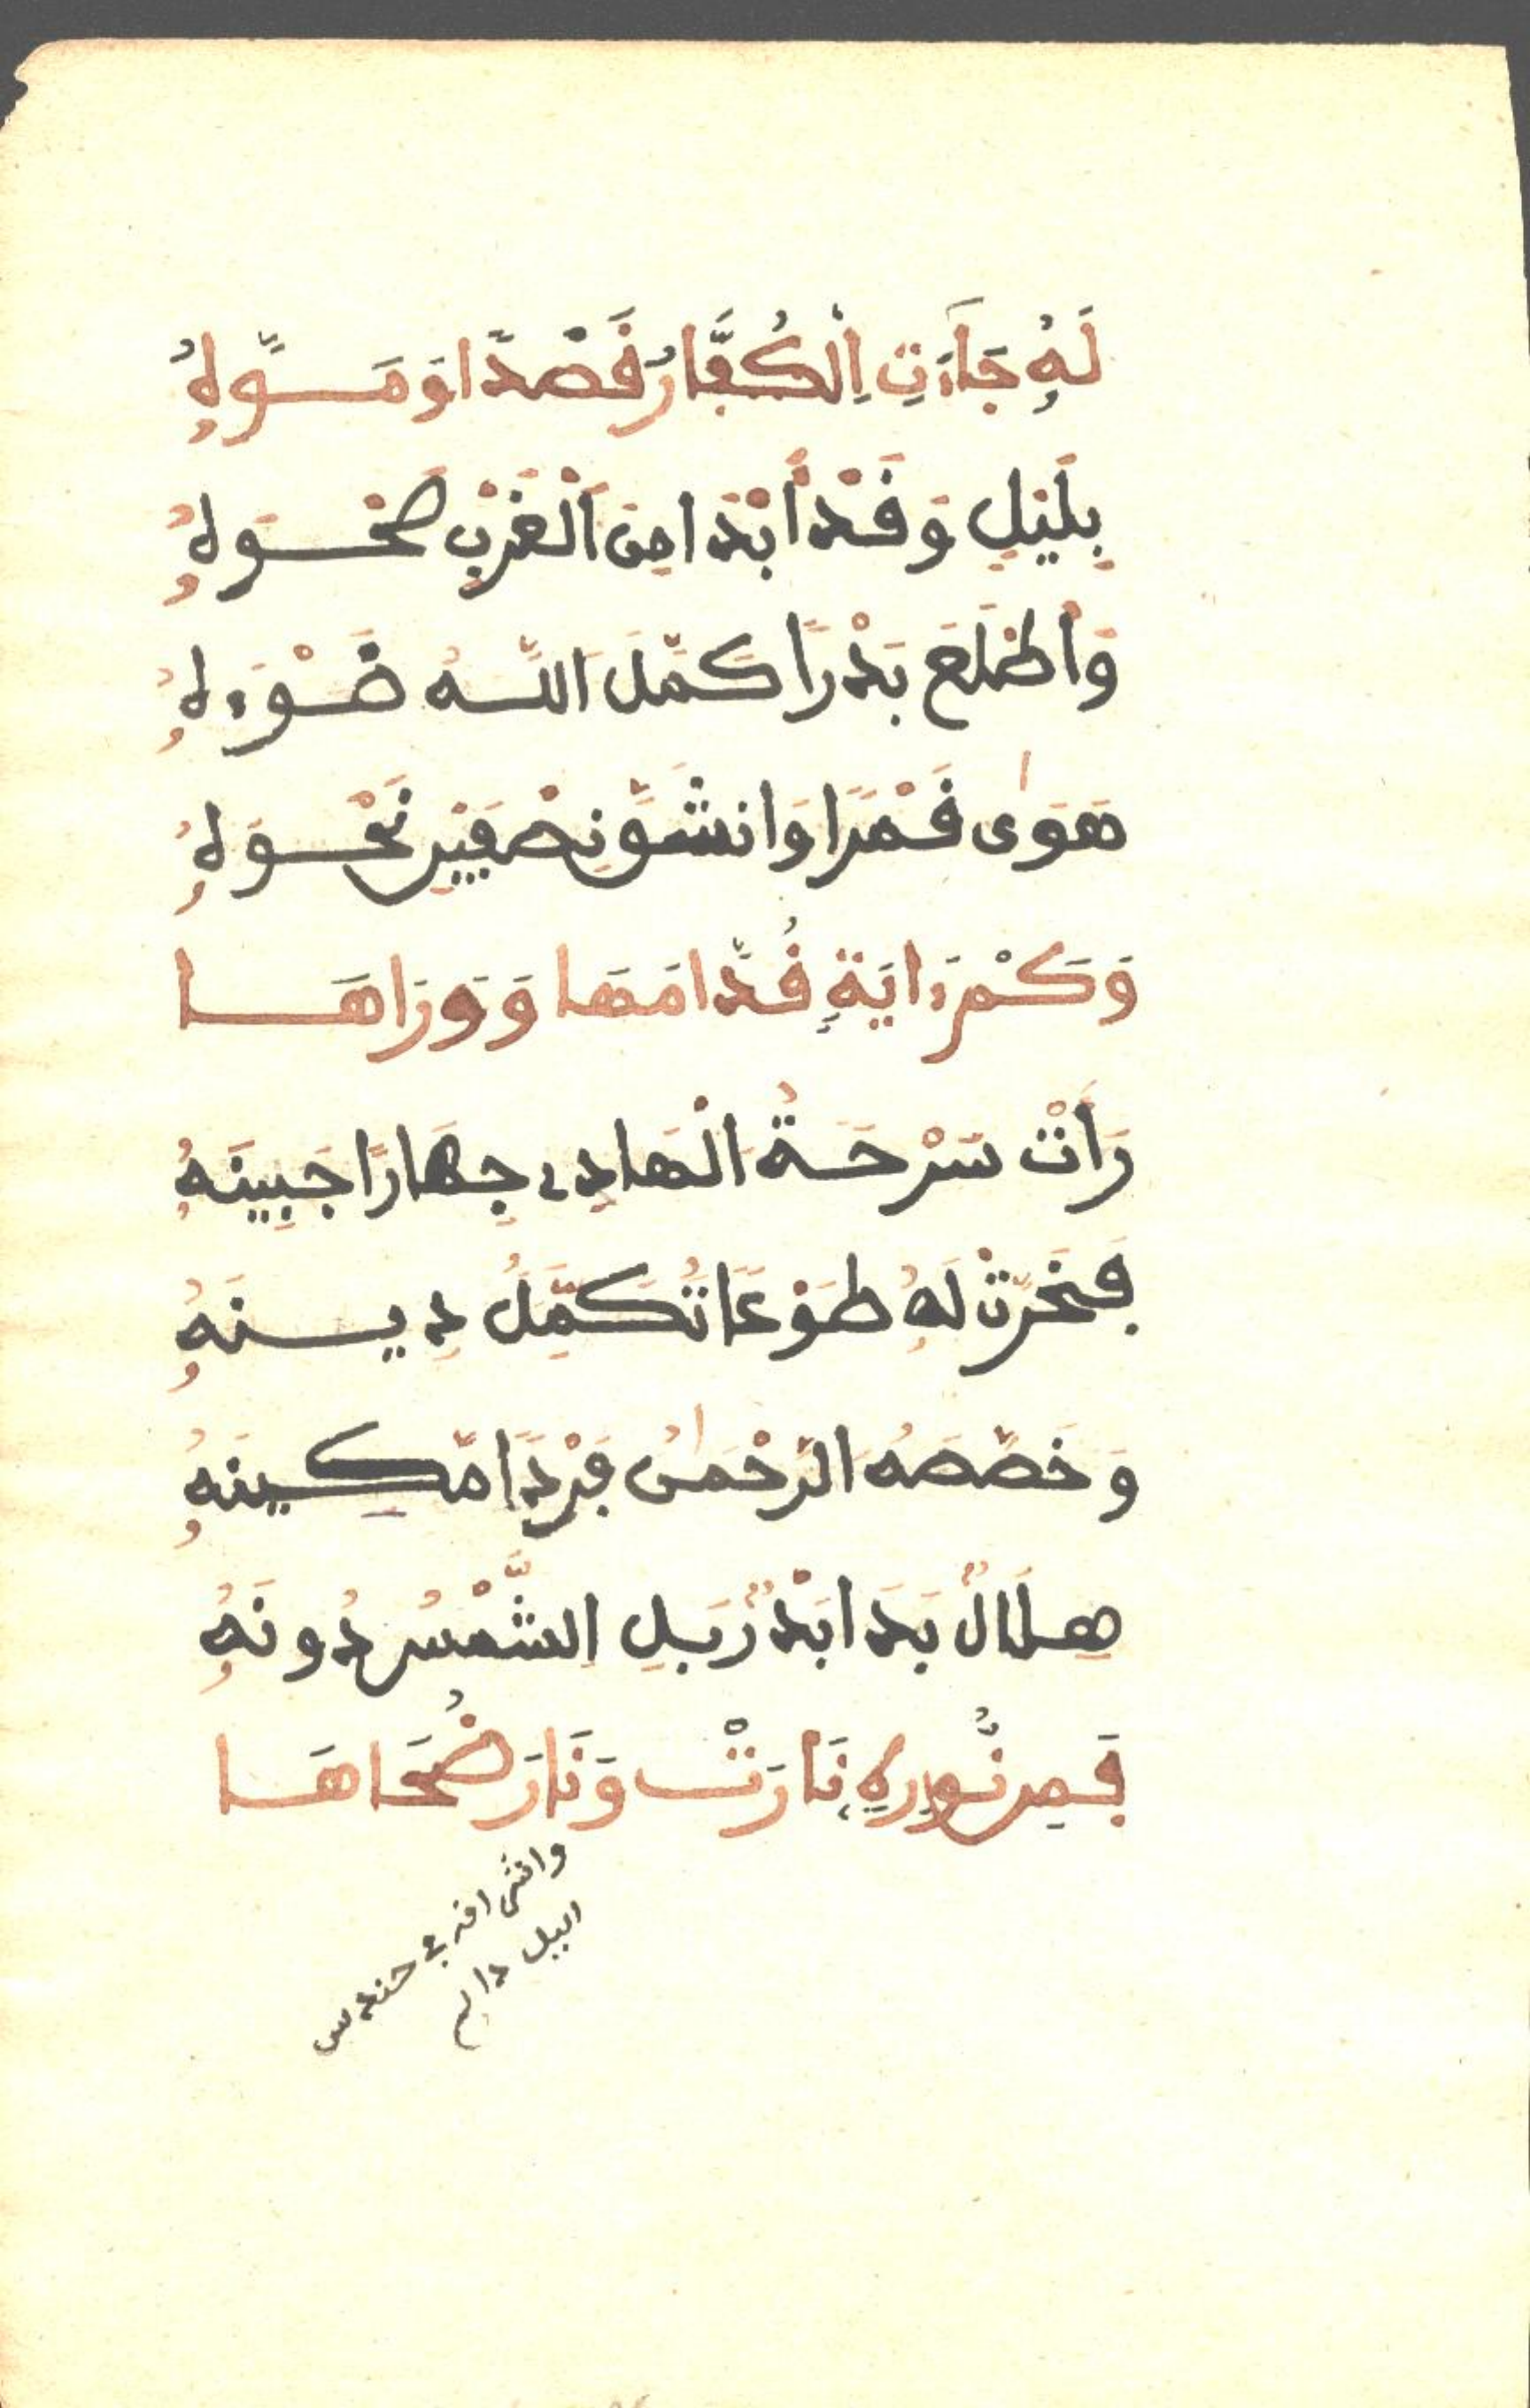 لَهُ جَاءَتِ اِلْكُفَّارُ قَصْدًا وَمَسَّوَلهُ
بِلَيْلٍ وَقَدْ أَبْدَا مِنَ اَلْغَرْبِ صَحْوَلهُ
وَأَطْلَعَ بَدْرًا كَمَّلَ اَللَّهُ ضَوْءَلهُ
هَوَىٰ قَمَرًا وَانشَقَّ نِصْفَيْنِ نَحْوَلهُ
وَكَمْ ءَايَةٍ قُدَّامَهَا وَوَرَاهَا
رَأَتْ سَرْحَةُ اَلْهَادِے جِهَارًا جَبِينَهُ
فَخَرَّتْ لَهُ طَوْعًا تُكَمِّلُ دِينَهُ
وَخَصَّصَهُ اَلرَّحْمَٰنُ فَرْدًا مَّكِينَهُ
هِلَالٌ بَدَا بَدْرٌ بَلِ اِلشَّمْسُ دُونَهُ
فَمِن نُّورِهِ نَارَتْ وَنَارَ ضُحَاهَا
وانشق افر في حندس
اليل دايم